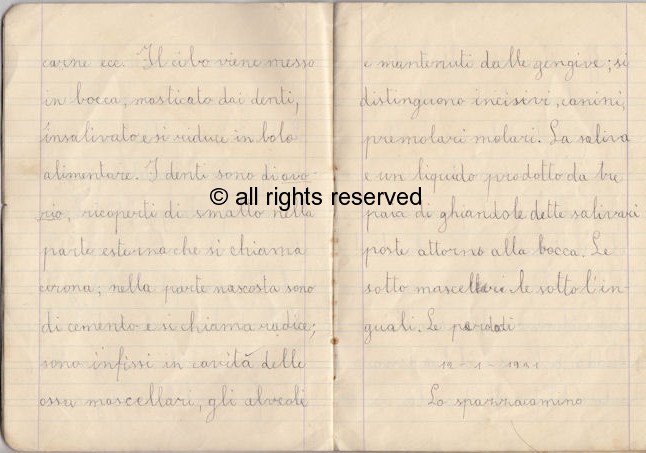 carne ecc. Il cibo viene messo
in bocca, masticato dai denti,
insalivato e si riduce in bolo
alimentare. I denti sono di avo-
rio, ricoperti di smalto nella
parte esterna che si chiama
corona; nella parte nascosta sono
di cemento e si chiama radice;
sono infissi in cavità delle
ossa mascellari, gli alveoli
© all rights reserved
e mantenuti dalle gengive; si
distinguono incisivi, canini,
premolari molari. La saliva
è un liquido prodotto da tre
paia di ghiandole dette salivari
poste attorno alla bocca. Le
sotto mascellari le sotto l'in-
guali. Le
1941
Lo spazzacamino